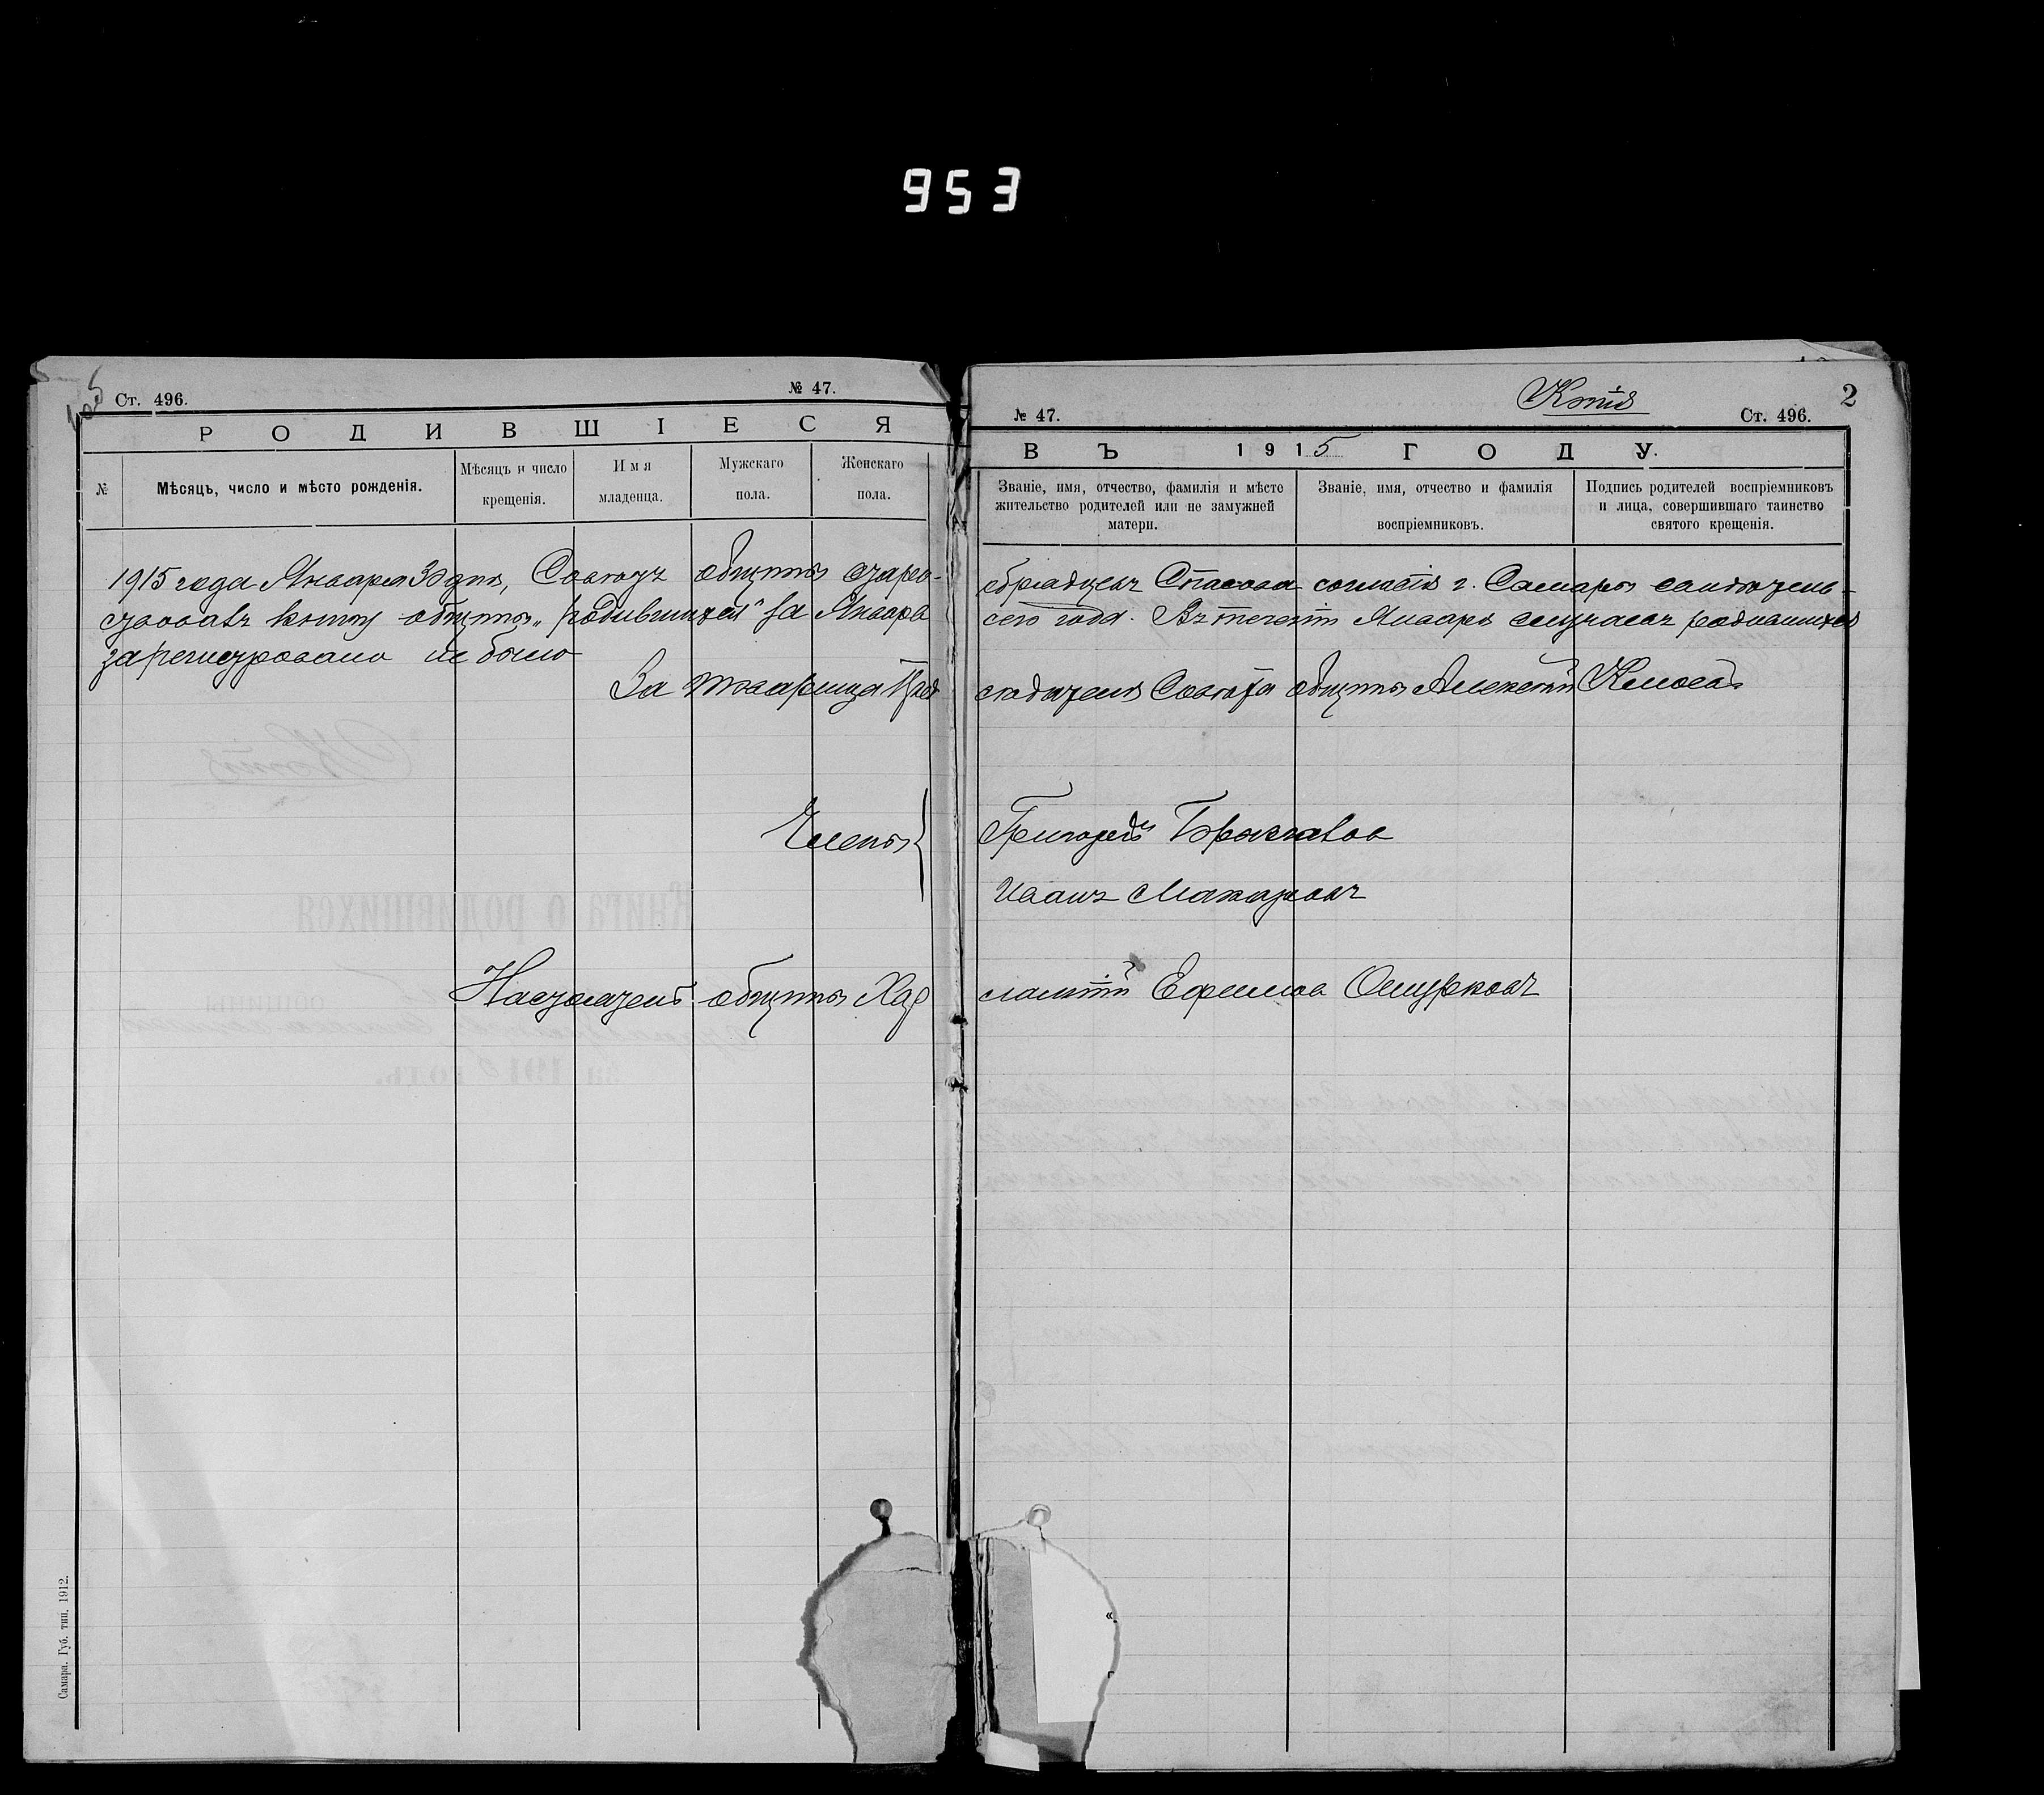 953
Ст. 496.
№ 47.
РОДИВШІЕСЯ
№
Мѣсяцъ, число и мѣсто рожденія.
Мѣсяцъ и число крещенія.
Имя младенца.
Мужскаго пола.
Женскаго пола.
1915 года Января 30 дня, Совѣтъ общины старо-
общины „родившихся" за Январь
зарегистровано не было
За товарища Пред
Члены
Настоятель общины Хар
Самара. Губ. тип. 1912.
Копія
2
№ 47.
Ст. 496.
ВЪ 1915 ГОДУ.
Званіе, имя, отчество, фамилія и мѣсто
жительство родителей или не замужней
матери.
Званіе, имя, отчество и фамилія
воспріемниковъ.
Подпись родителей воспріемниковъ
и лица, совершившаго таинство
святого крещенія.
обрядцевъ Спасова согласія г. Самары
сего года. Въ теченіи Января случаевъ родившихся
сѣдателя Совѣта общины Алексѣй
Григорій
Иванъ Макаровъ
лампій Ефимов Ошурковъ